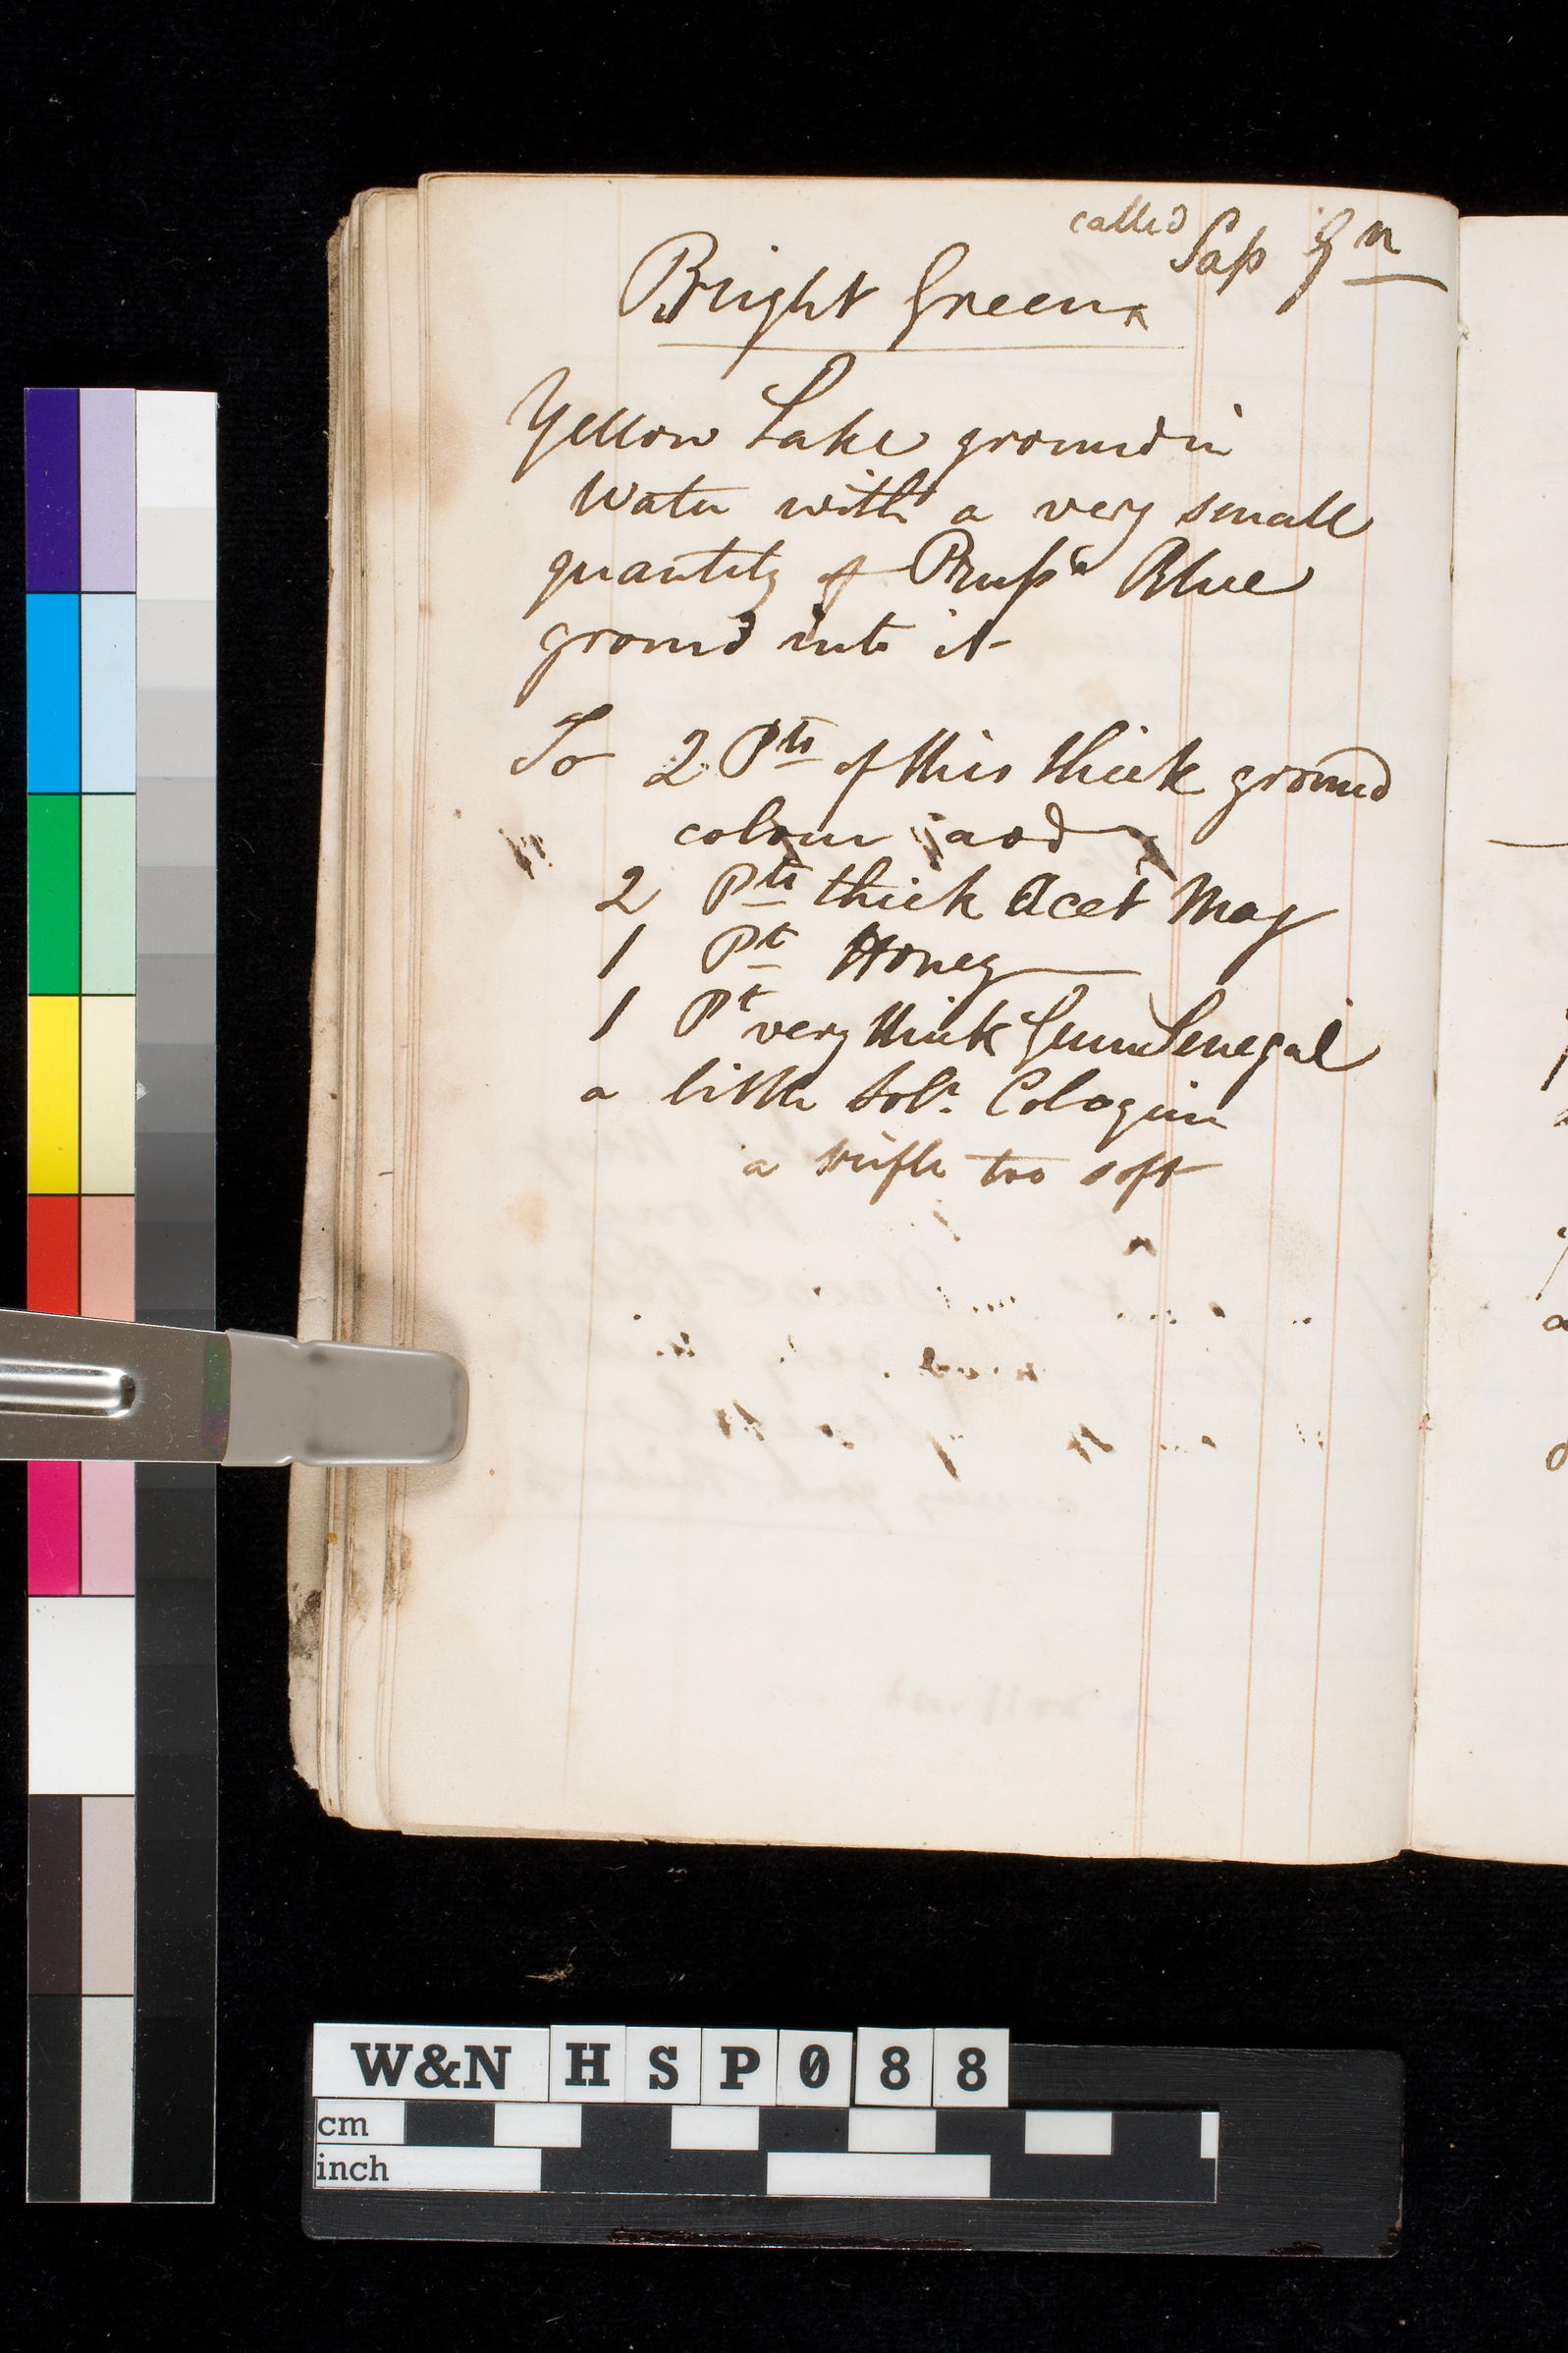 called Sap Gn
Bright Green
Yellow Lake ground in
Water with a very small
quantity of Prussn Blue
ground into it
To 2 Pts of this thick ground
colour add
2 Pts thick Acet Mag
1 Pt Honey
1 Pt very thick Gum Senegal
a little Soln. Coloquin
a trifle too soft
W&N HSP088
cm
inch